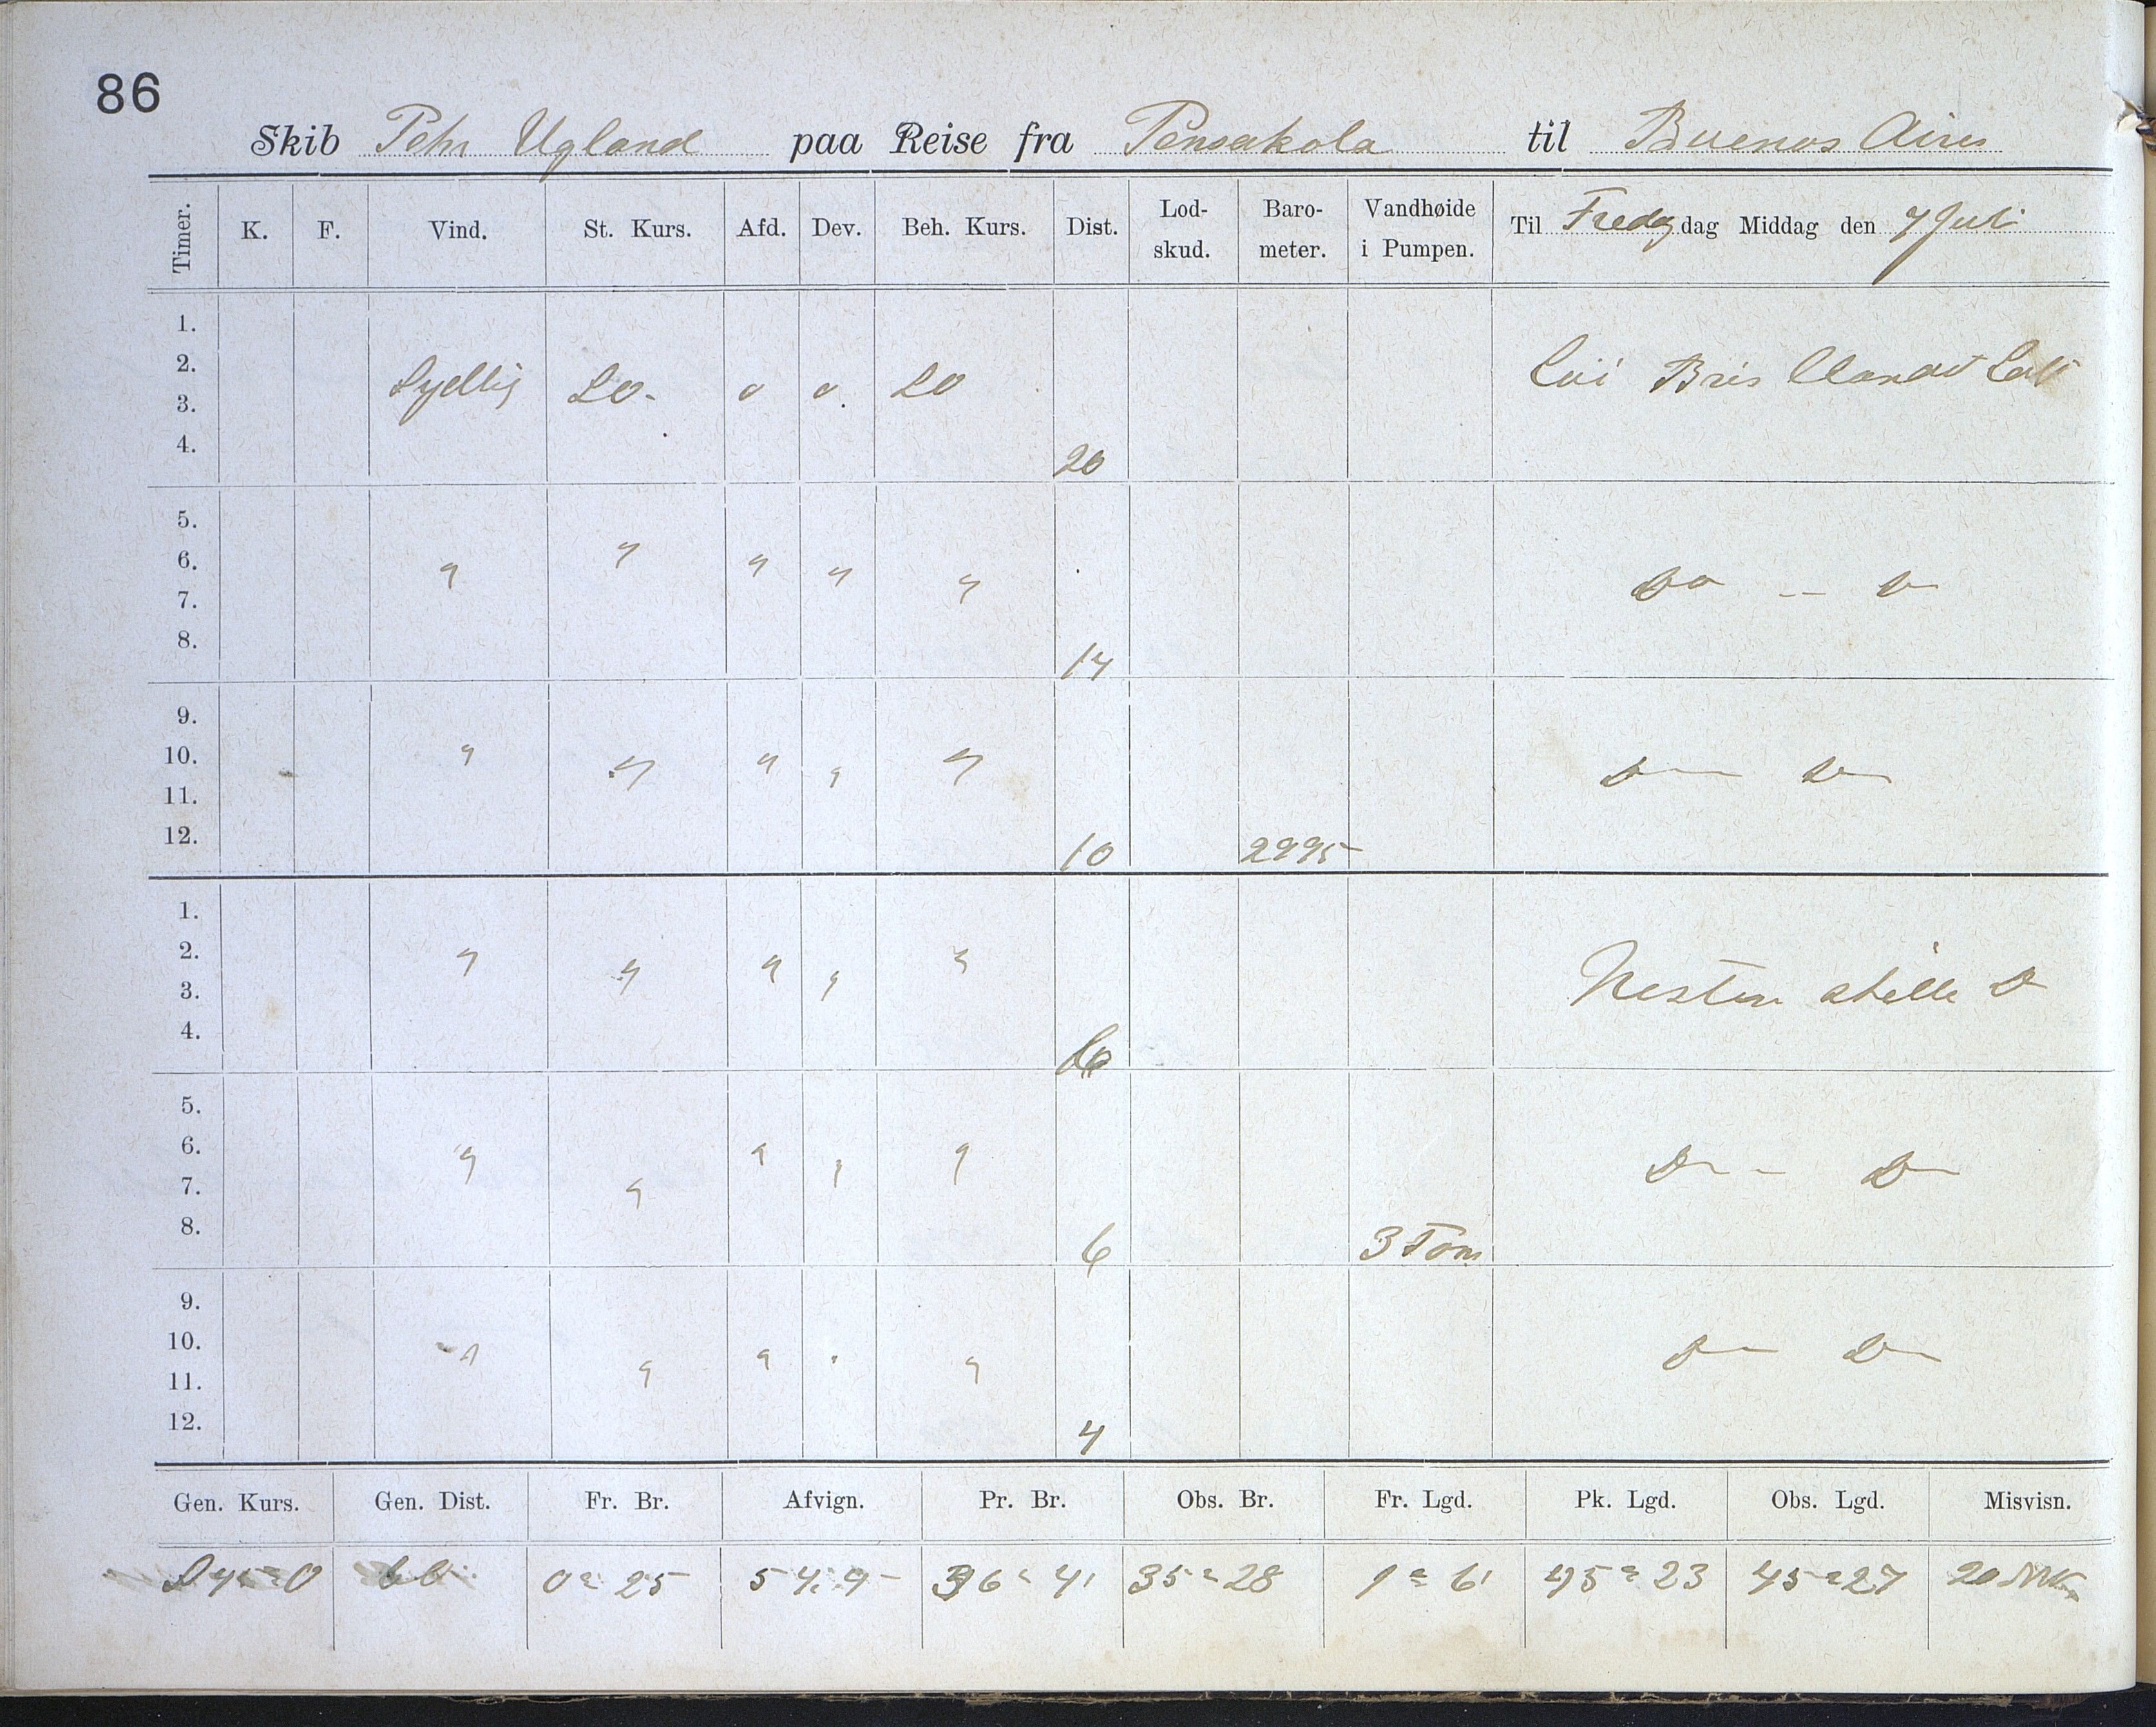 86
Skib Pehr Ugland paa Reise fra Pensakola til Buenos Aires
Timer. K. F. Vind. St. Kurs. Afd. Dev. Beh. Kurs. Dist. Lod-skud. Baro-meter. Vandhøide i Pumpen. Til Fredag dag Middag den 7 Juli
1.
2.
3. Sydlig SO. " " SO Bris
4. 20
5.
6. " " " " " Do -- D
7.
8. 14
9.
10. " " " " " D— D—
11.
12. 10 2995
1.
2. " " " " "
3. Nesten stille D
4.
5.
6. " " " " " D— D—
7.
8. 6 3 Tom
9.
10. " " " " " D— D—
11.
12. 4
Gen. Kurs. Gen. Dist. Fr. Br. Afvign. Pr. Br. Obs. Br. Fr. Lgd. Pk. Lgd. Obs. Lgd. Misvisn.
0° 25 54.9 36° 41 35° 28 1° 6' 45° 23 45° 27 20